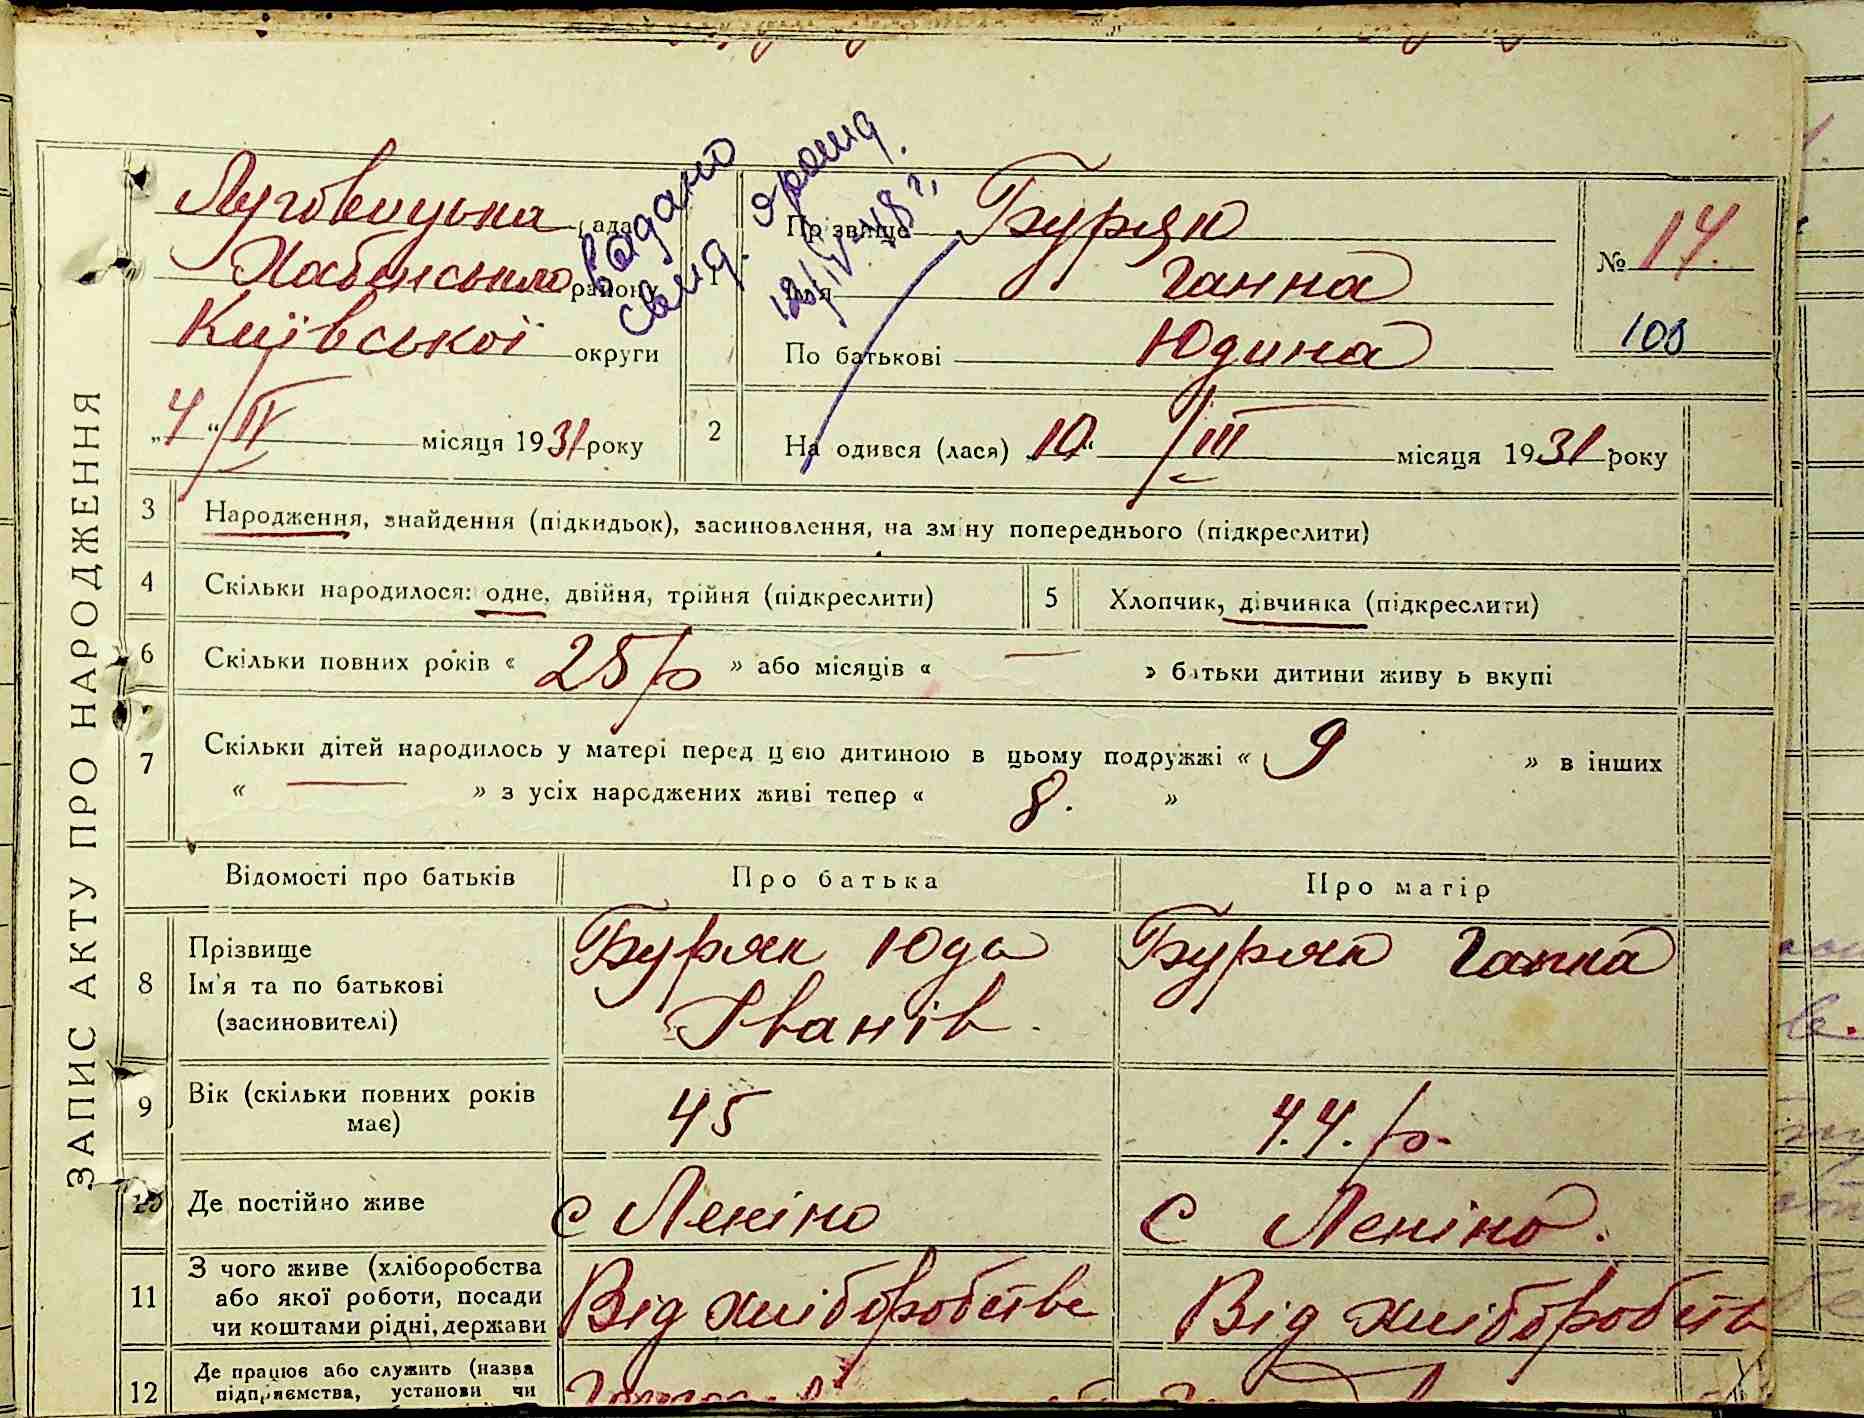 ЗАПИС АКТУ ПРО НАРОДЖЕННЯ
Луговицька рада
Хабенського району
Київської округи
„4“ IV місяця 1931 року
видано
свид. гром
12/IV-48 г.
1 Прізвище Буряк
Імя Ганна
По батькові Юдина
№ 14.
108
2 На одився (лася) „10“ III місяця 1931 року
3 Народження, знайдення (підкидьок), засиновлення, на зміну попереднього (підкреслити)
4 Скільки народилося: одне, двійня, трійня (підкреслити)
5 Хлопчик, дівчинка (підкреслити)
6 Скільки повних років « 25 р » або місяців « — » батьки дитини живу ь вкупі
7 Скільки дітей народилось у матері перед цією дитиною в цьому подружжі « 9 » в інших
« — » з усіх народжених живі тепер « 8. »
Відомості про батьків Про батька Про матір
8 Прізвище Ім'я та по батькові (засиновителі)
Буряк Юда Іванів.
Буряк Ганна
9 Вік (скільки повних років має) 45 44. р.
10 Де постійно живе с Леніно с Леніно.
11 З чого живе (хліборобства або якої роботи, посади чи коштами рідні, держави
Від хліборобства Від хліборобств
12 Де працює або служить (назва підприємства, установи чи